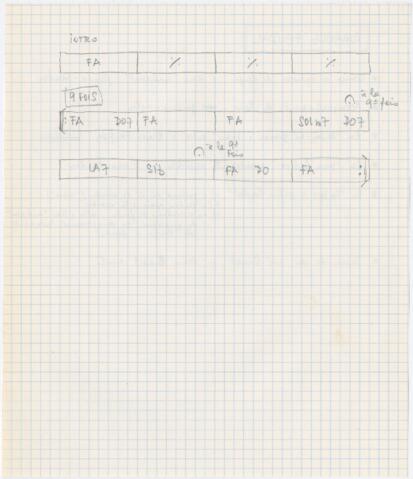 INTRO
FA % % %
9 FOIS
à la 9e fois
|: FA DO7 | FA | FA | SOLm7 DO7 |
à la 9e fois
| LA7 | SIb | FA DO | FA :|